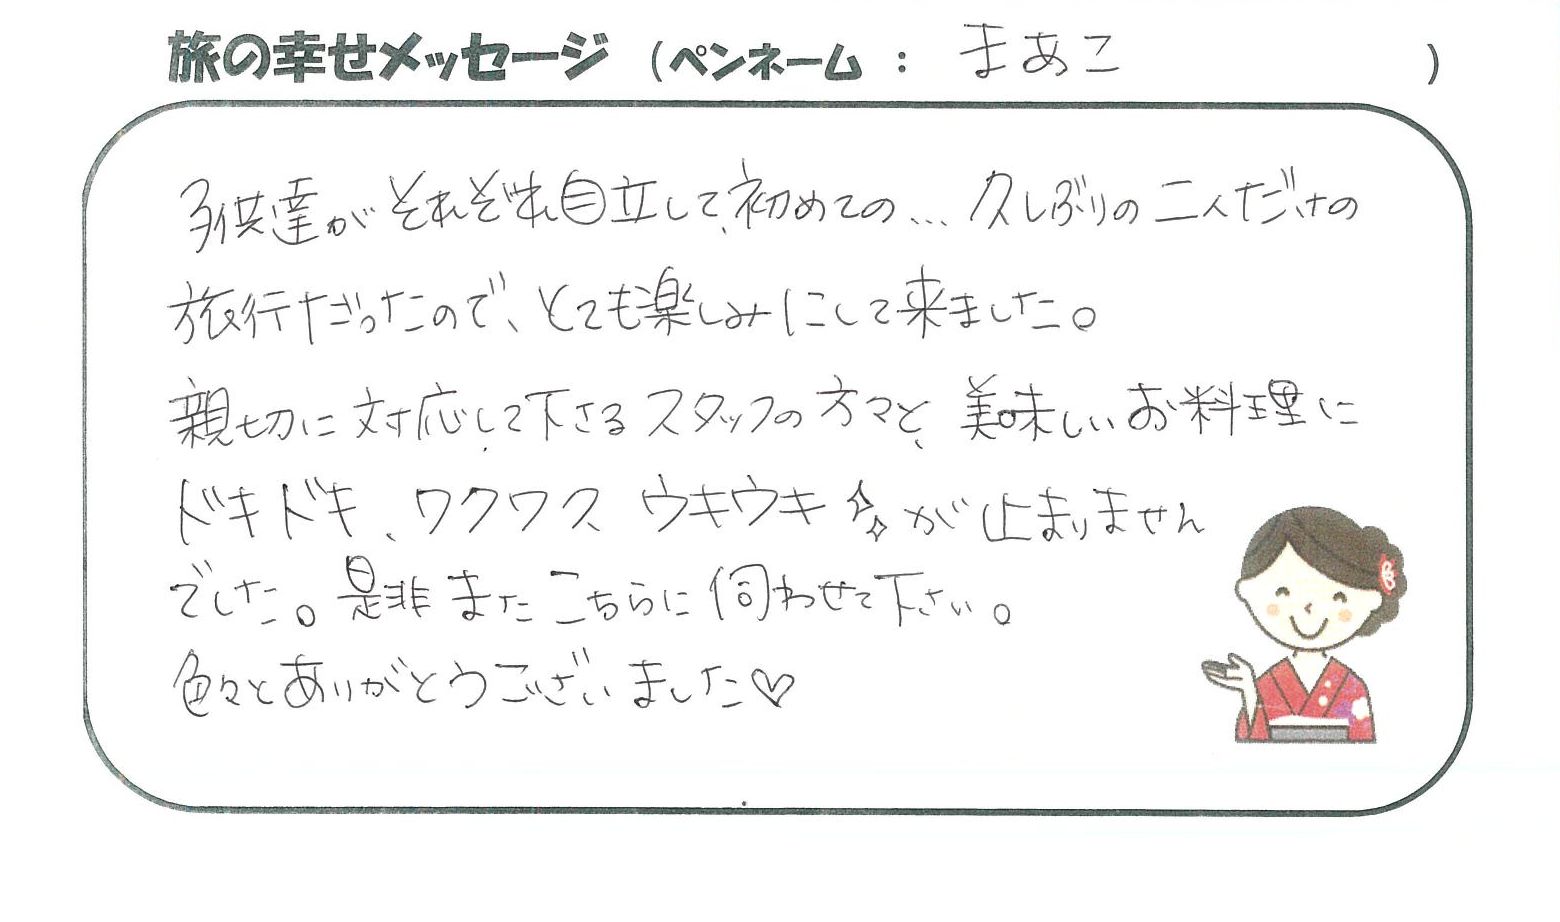 旅の幸せメッセージ (ペンネーム : まあこ )
子供達がそれぞれ自立して、初めての… 久しぶりの二人だけの
旅行だったので、とても楽しみにして来ました。
親切に対応して下さるスタッフの方々と、美味しいお料理に
ドキドキ、ワクワク ウキウキ✨が止まりません
でした。是非またこちらに伺わせて下さい。
色々とありがとうございました♡